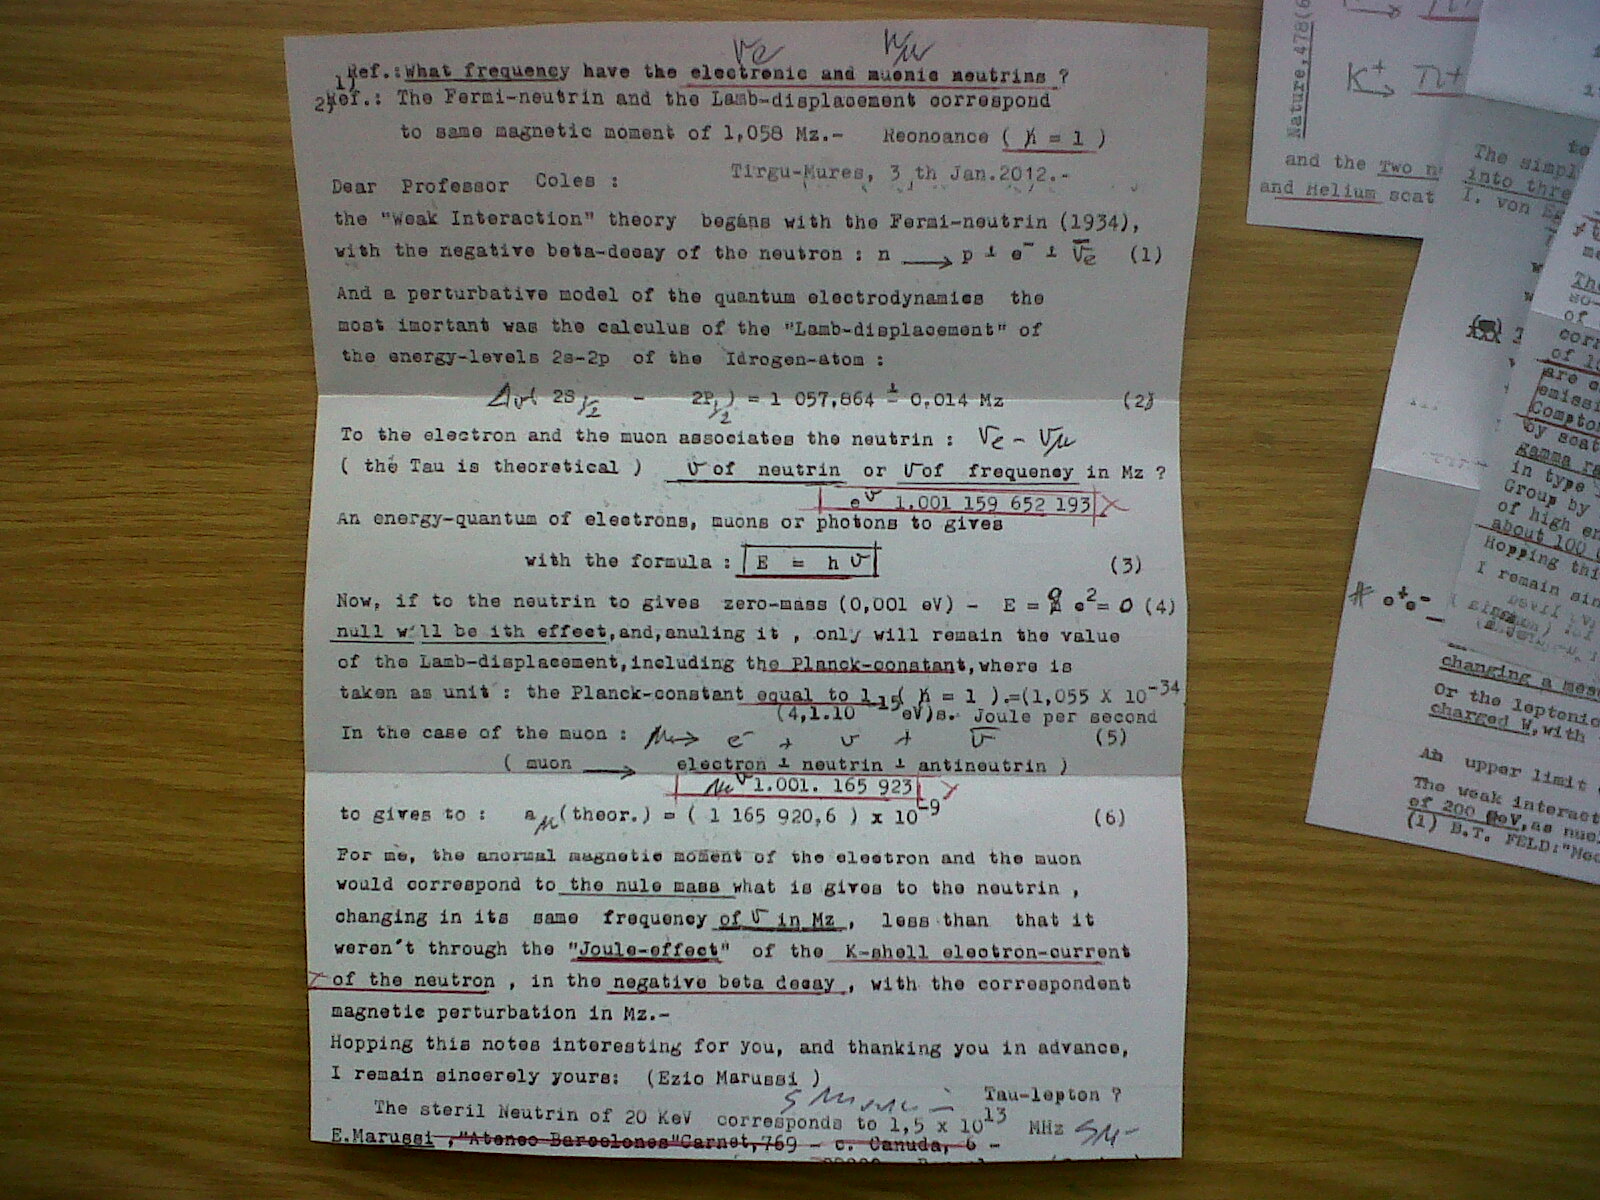 νe νμ
1) Ref.: What frequency have the electronic and muonic neutrins ?
2) Ref.: The Fermi-neutrin and the Lamb-displacement correspond
to same magnetic moment of 1,058 Mz.- Reonoance ( ħ = 1 )
Tirgu-Mures, 3 th Jan.2012.-
Dear Professor Coles :
the "Weak Interaction" theory begans with the Fermi-neutrin (1934),
with the negative beta-decay of the neutron : n → p + e⁻ + ν̄e (1)
And a perturbative model of the quantum electrodynamics the
most imortant was the calculus of the "Lamb-displacement" of
the energy-levels 2s-2p of the Idrogen-atom :
Δν( 2S1/2 - 2P1/2 ) = 1 057,864 ± 0,014 Mz (2)
To the electron and the muon associates the neutrin : νe - νμ
( the Tau is theoretical ) ν of neutrin or ν of frequency in Mz ?
eν 1.001 159 652 193
An energy-quantum of electrons, muons or photons to gives
with the formula : E = h ν (3)
Now, if to the neutrin to gives zero-mass (0,001 eV) - E = 0 c² = 0 (4)
null will be ith effect,and,anuling it , only will remain the value
of the Lamb-displacement,including the Planck-constant,where is
taken as unit : the Planck-constant equal to 1 ( ħ = 1 ).=(1,055 X 10⁻³⁴
(4,1.10⁻¹⁵ eV)s. Joule per second
In the case of the muon : μ → e⁻ + ν + ν̄ (5)
( muon → electron + neutrin + antineutrin )
μν 1.001. 165 923
to gives to : aμ(theor.) = ( 1 165 920,6 ) x 10⁻⁹ (6)
For me, the anormal magnetic moment of the electron and the muon
would correspond to the nule mass what is gives to the neutrin ,
changing in its same frequency of ν in Mz , less than that it
weren't through the "Joule-effect" of the K-shell electron-current
of the neutron , in the negative beta decay , with the correspondent
magnetic perturbation in Mz.-
Hopping this notes interesting for you, and thanking you in advance,
I remain sincerely yours: (Ezio Marussi )
Tau-lepton ?
The steril Neutrin of 20 KeV corresponds to 1,5 x 10¹³ MHz
E.Marussi ,"Ateneo Barcelones"Carnet,769 - c. Canuda, 6 -
Nature,478(6
K⁺ → π+
and the Two n
and Helium scat
The simpl
into thre
I. von
corr
of 10
are
emissi
Compton
by scat
gamma ra
in type
Group by
of high en
about 100
Hopping thi
I remain sin
e⁺e⁻
changing a mes
Or the leptonic
charged W,with
An upper limit
The weak interact
of 200 GeV,as nuc
(1) B.T. FELD:"Mee